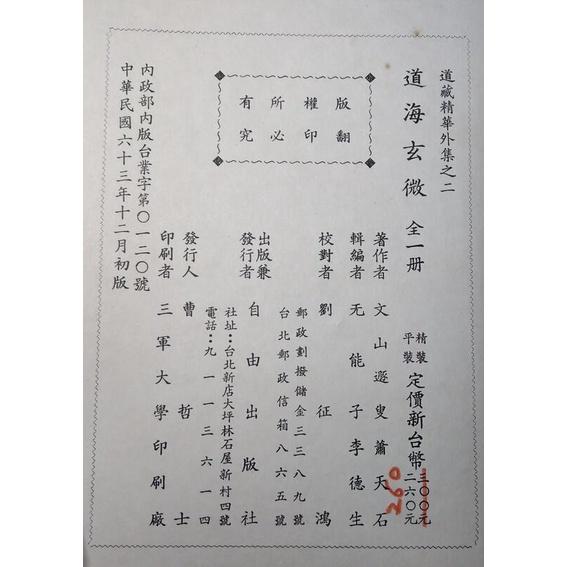 道藏精華外集之二
道海玄微 全一冊
精裝 平裝 定價新台幣 三〇〇元 二六〇元
260
版權所有
翻印必究
著作者 文山遯叟蕭天石
輯編者 无能子李德生
校對者 劉征鴻
郵政劃撥儲金三三八九號
台北郵政信箱八六五號
出版兼發行者 自由出版社
社址：台北新店大坪林石屋新村四號
電話：九一一三六一四
發行人 曹哲士
印刷者 三軍大學印刷廠
內政部內版台業字第〇一二〇號
中華民國六十三年十二月初版